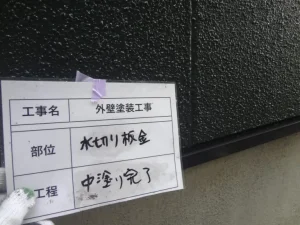 工事名 外壁塗装工事
部位 水切り板金
工程 中塗り完了